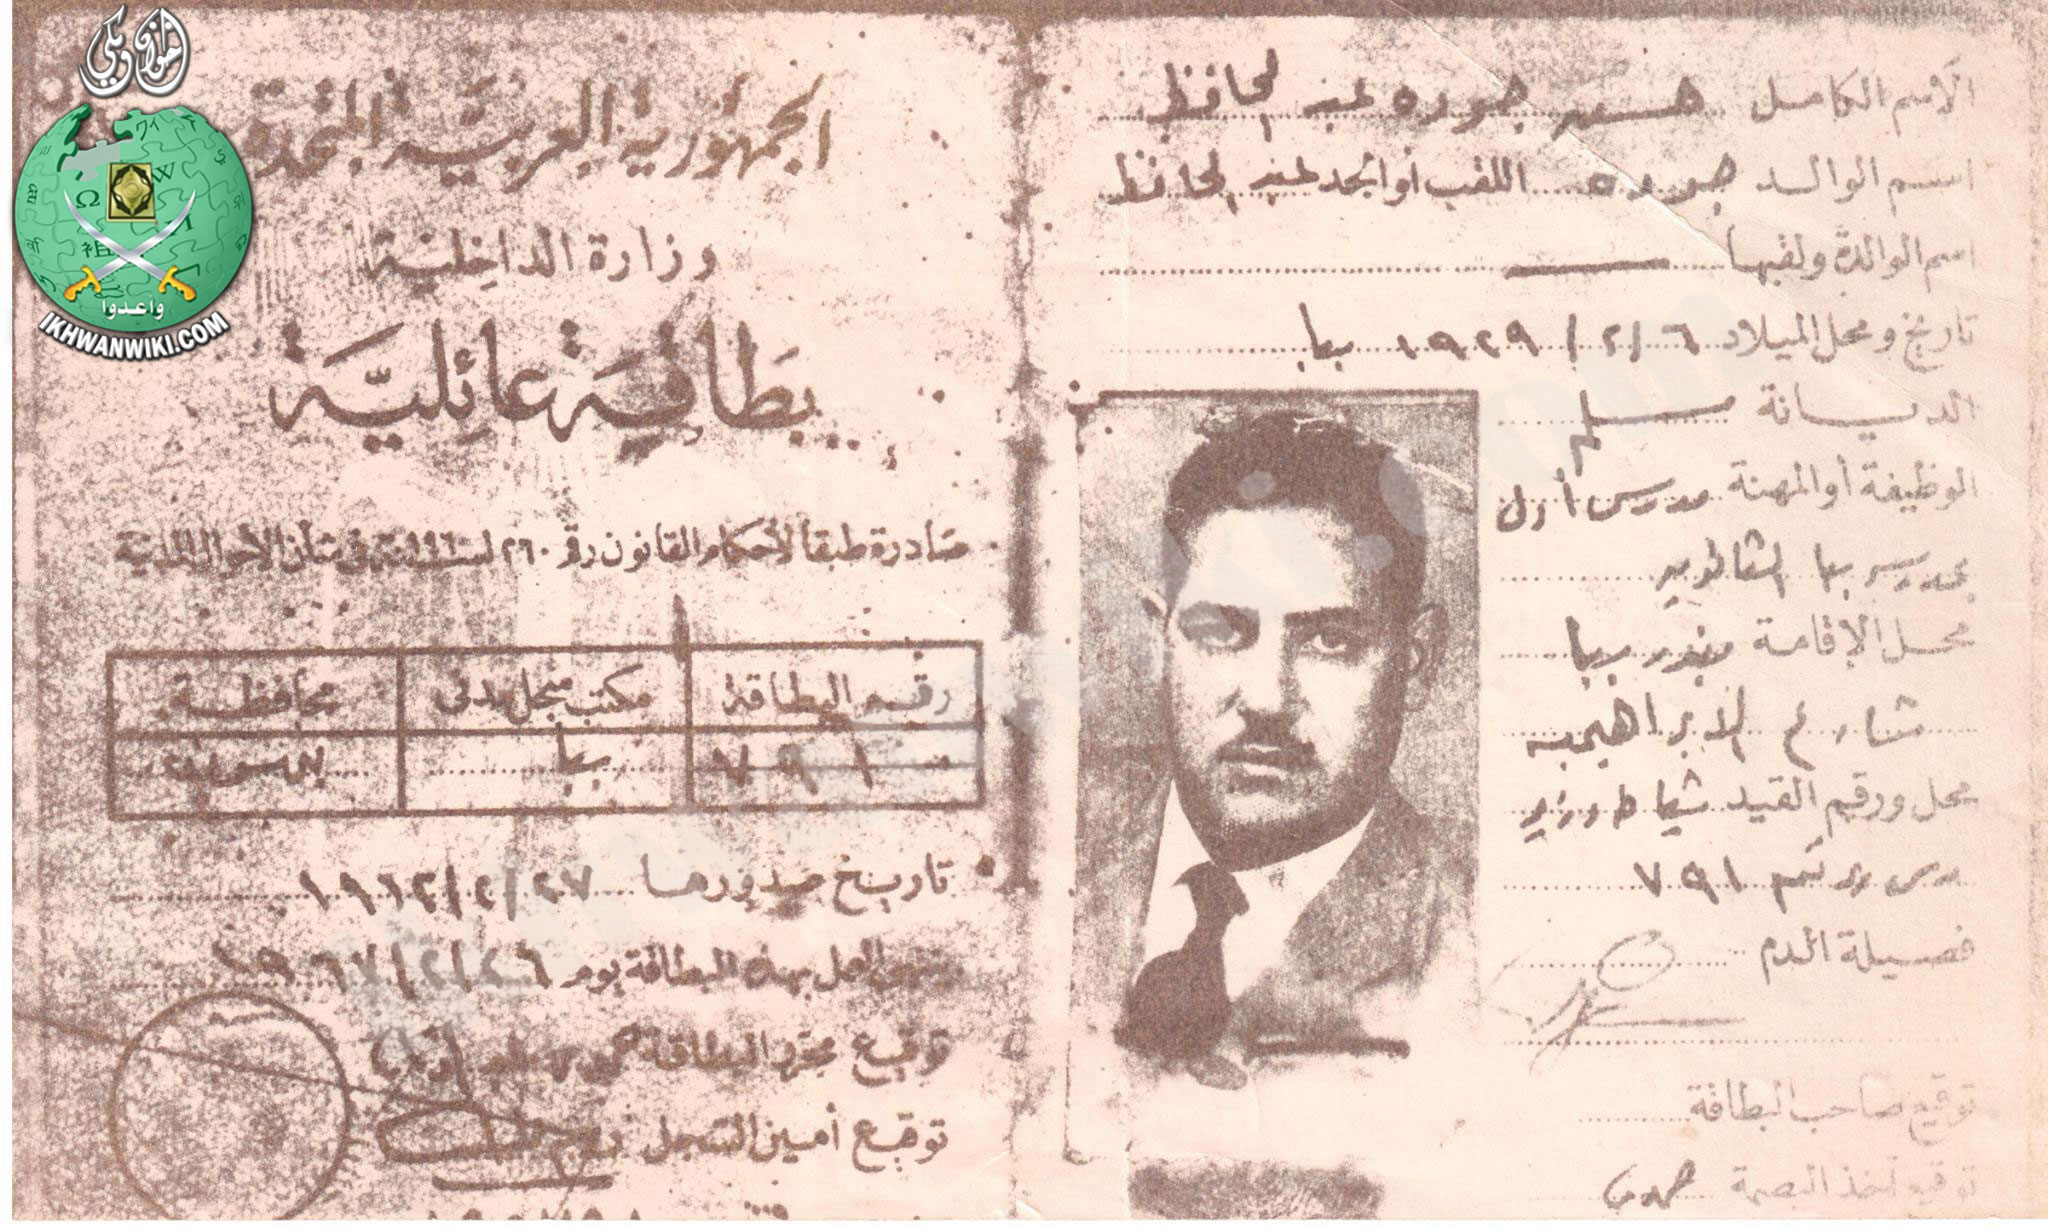 إخوان ويكي
وأعدوا
IKHWANWIKI.COM
الاسم الكامل حسن جوده عبد الحافظ
اسم الوالد جوده اللقب أو الجد عبد الحافظ
اسم الوالدة ولقبها
تاريخ ومحل الميلاد ٦/٢/١٩٢٩ ببا
الديانة مسلم
الوظيفة أو المهنة مدرس أول
بمدرسة ببا الثانوية
محل الإقامة بندر ببا
شارع الابراهيمية
محل ورقم القيد
رقم ٧٩١
فصيلة الدم
توقيع صاحب البطاقة
توقيع آخذ البصمة
الجمهورية العربية المتحدة
وزارة الداخلية
بطاقة عائلية
صادرة طبقاً لأحكام القانون رقم ٢٦٠ لسنة ١٩٦٠ في شأن الأحوال المدنية
رقم البطاقة مكتب سجل مدني محافظة
٧٩١ ببا بني سويف
تاريخ صدورها ٢٧/٢/١٩٦٢
ينتهى العمل بهذه البطاقة يوم ٢٦/٢/١٩٦٧
توقيع محرر البطاقة
توقيع أمين السجل